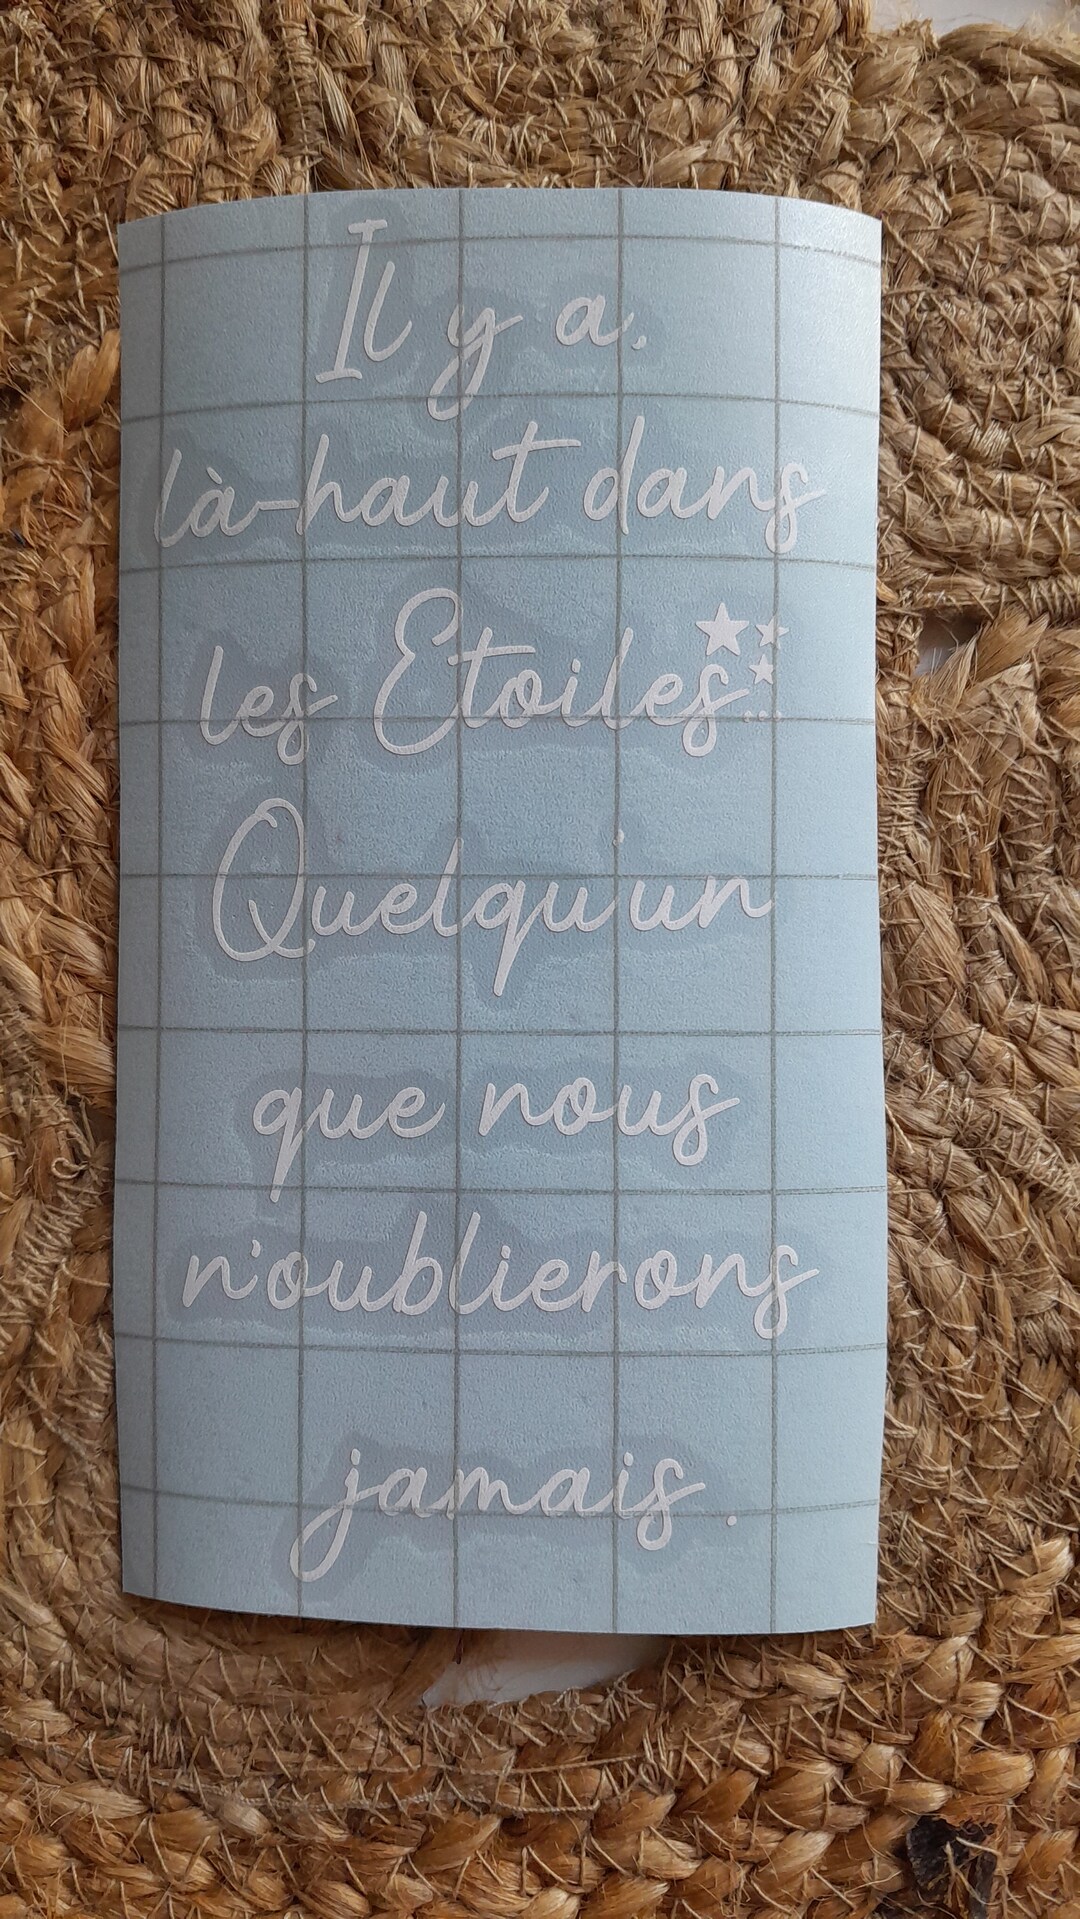 Il y a,
là-haut dans
les Etoiles...
Quelqu'un
que nous
n'oublierons
jamais .